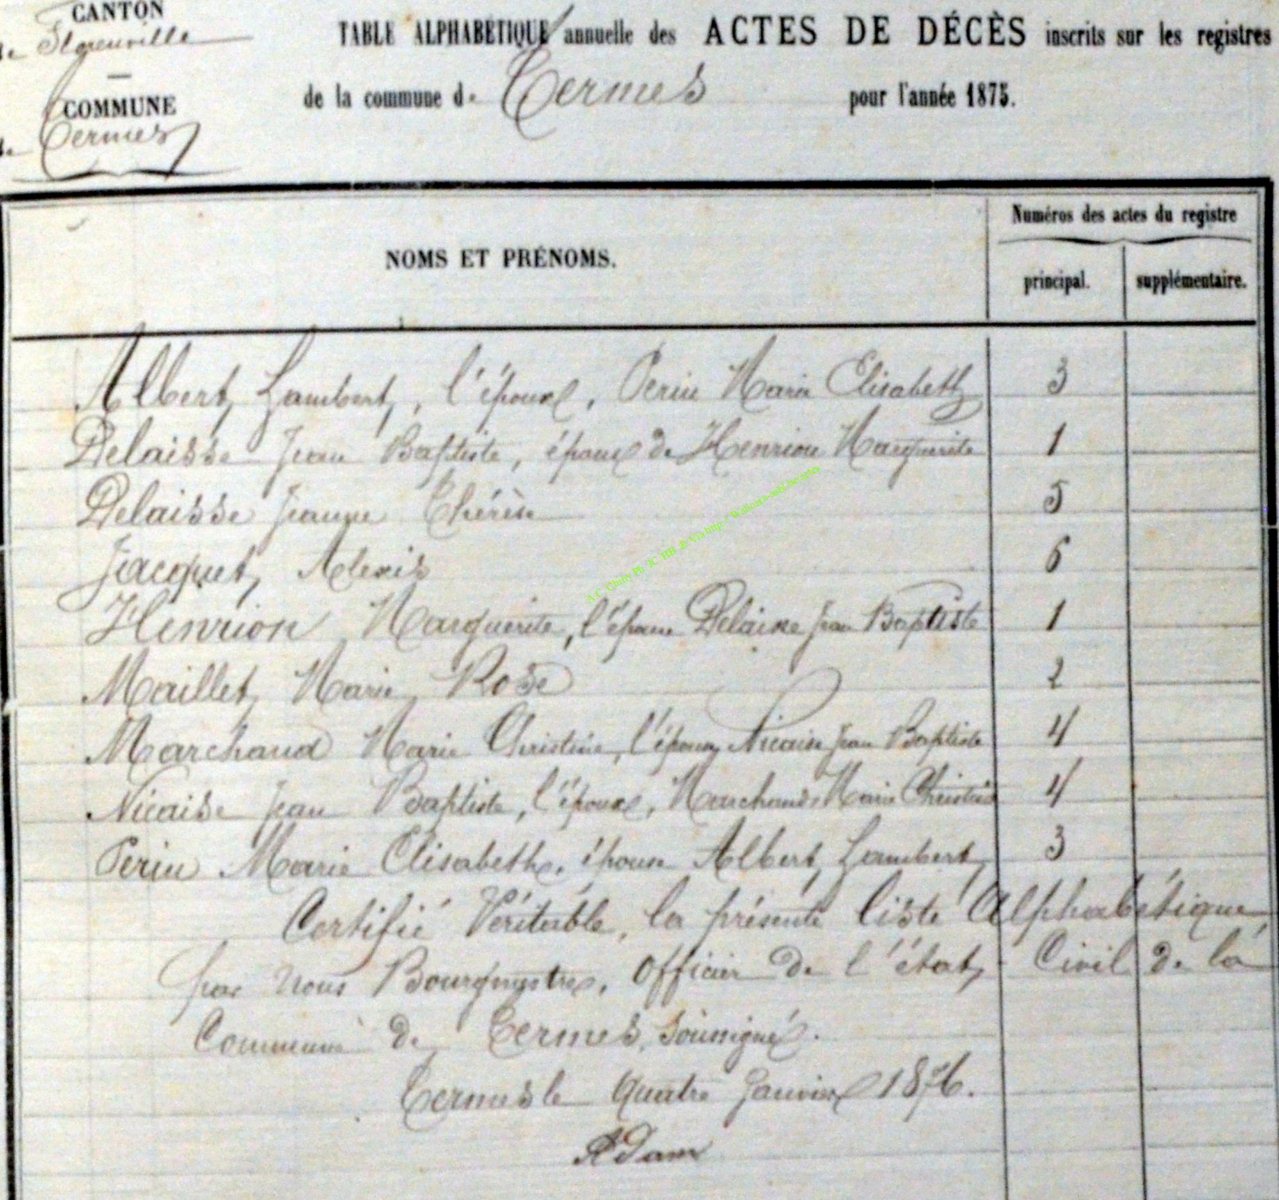 CANTON
de Florenville
COMMUNE
de Termes
TABLE ALPHABÉTIQUE annuelle des ACTES DE DÉCÈS inscrits sur les registres
de la commune de Termes pour l'année 1875.
NOMS ET PRÉNOMS.
Numéros des actes du registre
principal.
supplémentaire.
Albert, Lambert, l'époux, Perin Marie Elisabeth 3
Delaisse Jean Baptiste, époux de Henrion Marguerite 1
Delaisse Jeanne Thérèse 5
Jacquet, Alexis 6
Henrion Marguerite, l'épouse Delaisse Jean Baptiste 1
Maillet, Marie Rose 2
Marchand Marie Christine, l'épouse Nicaise Jean Baptiste 4
Nicaise Jean Baptiste, l'époux, Marchand Marie Christine 4
Perin Marie Elisabeth, épouse Albert, Lambert, 3
Certifié Véritable, la présente liste Alphabétique
par nous Bourgmestre, officier de l'état, Civil de la
Commune de Termes, soussigné.
Termes le quatre Janvier 1876.
Adam